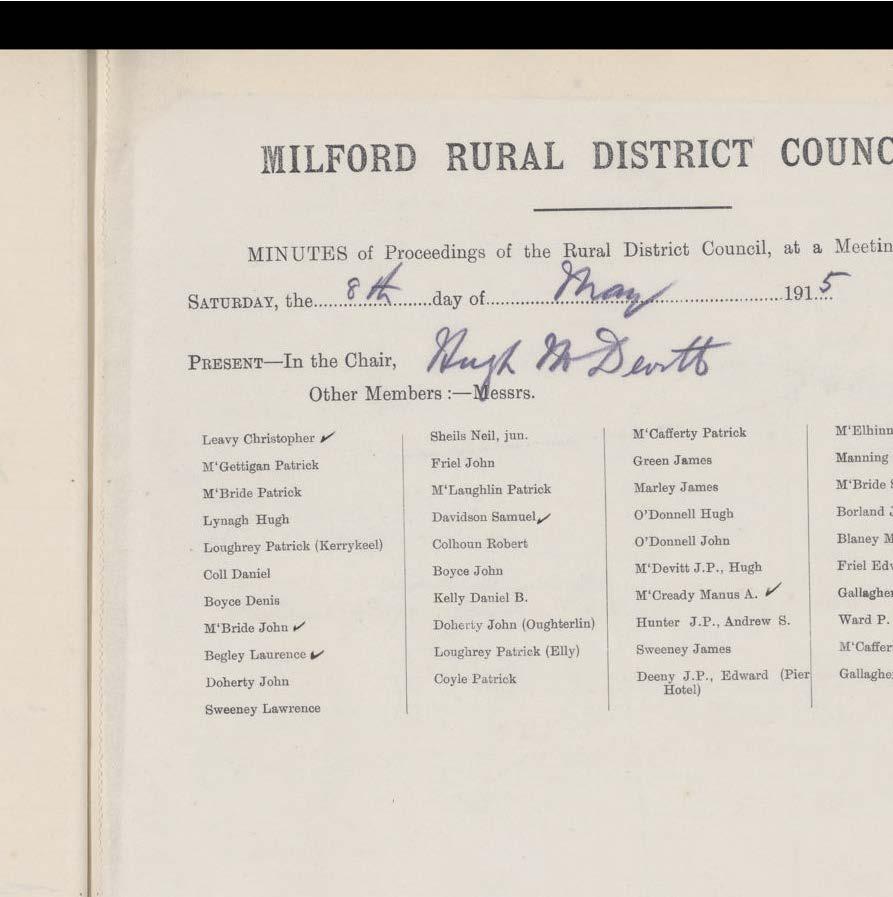 MILFORD RURAL DISTRICT COUNC
MINUTES of Proceedings of the Rural District Council, at a Meetin
SATURDAY, the 8th day of May 1915
PRESENT—In the Chair, Hugh McDevitt
Other Members :—Messrs.
Leavy Christopher ✓
M‘Gettigan Patrick
M‘Bride Patrick
Lynagh Hugh
Loughrey Patrick (Kerrykeel)
Coll Daniel
Boyce Denis
M‘Bride John ✓
Begley Laurence ✓
Doherty John
Sweeney Lawrence
Sheils Neil, jun.
Friel John
M‘Laughlin Patrick
Davidson Samuel ✓
Colhoun Robert
Boyce John
Kelly Daniel B.
Doherty John (Oughterlin)
Loughrey Patrick (Elly)
Coyle Patrick
M‘Cafferty Patrick
Green James
Marley James
O’Donnell Hugh
O’Donnell John
M‘Devitt J.P., Hugh
M‘Cready Manus A. ✓
Hunter J.P., Andrew S.
Sweeney James
Deeny J.P., Edward (Pier
Hotel)
M‘Elhinn
Manning
M‘Bride
Borland J
Blaney M
Friel Edw
Gallagher
Ward P.
M‘Caffer
Gallaghe